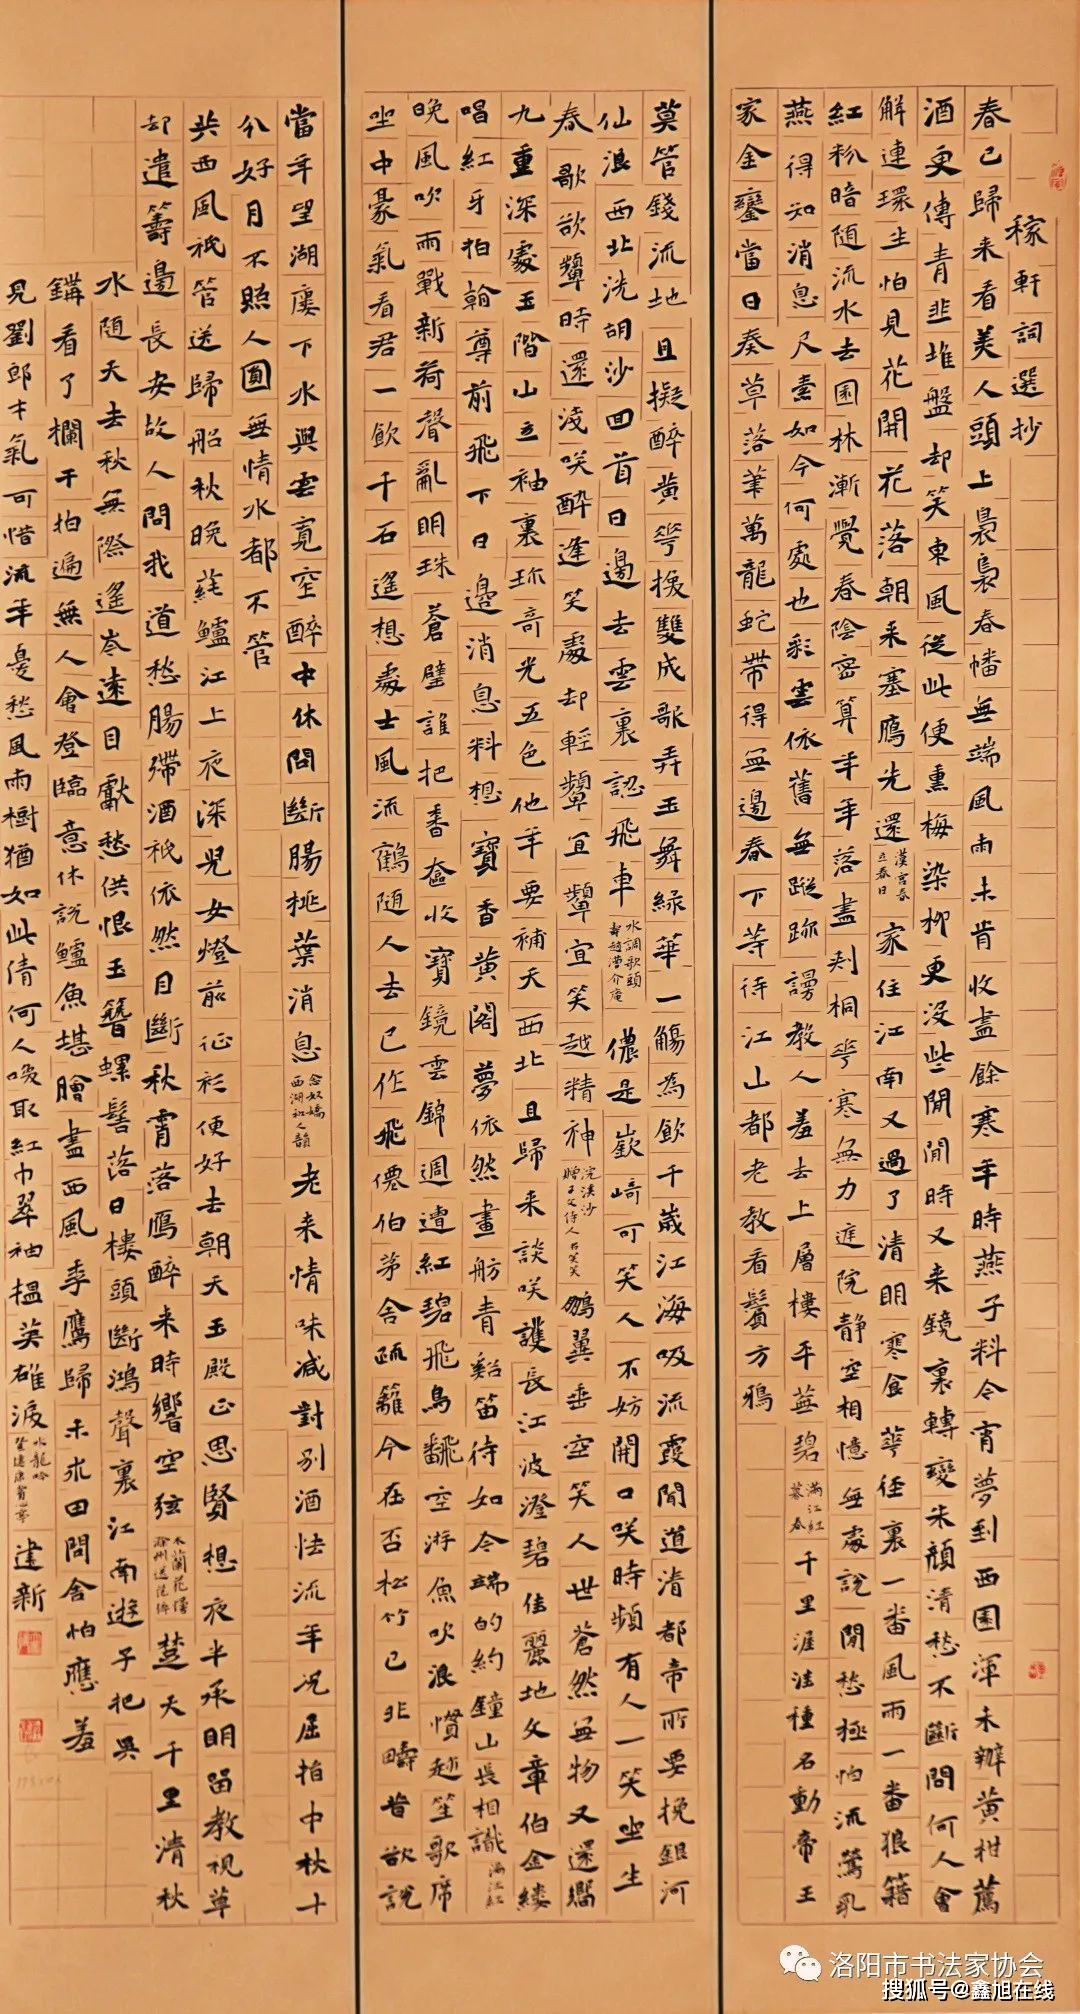 稼軒詞選抄
春已歸来看美人頭上裊裊春幡無端風雨未肯收盡餘寒年時燕子料今宵夢到西園渾未辦黃柑薦
酒更傳青韭堆盤却笑東風從此便熏梅染柳更没些閒閒時又来鏡裏轉變朱顏清愁不斷問何人會
解連環生怕見花開花落朝来塞鴈先還 漢宮春 立春日 家住江南又過了清明寒食花徑裏一番風雨一番狼籍
紅粉暗隨流水去園林漸覺春陰密算年年落盡刺桐花寒無力庭院静空相憶無處說閒愁極怕流鶯乳
燕得知消息尺素如今何處也彩雲依舊無蹤跡謾教人羞去上層樓平蕪碧 滿江紅 暮春 千里渥洼種名動帝王
家金鑾當日奏草落筆萬龍蛇帶得無邊春下等待江山都老教看鬢方鴉
莫管錢流地且擬醉黃花換雙成歌弄玉舞綠華一觴為飲千歲江海吸流霞聞道清都帝所要挽銀河
仙浪西北洗胡沙回首日邊去雲裏認飛車 水調歌頭 壽趙漕介庵 儂是嶔崎可笑人不妨開口笑時頻有人一笑坐生
春 歌欲顰時還淺笑醉逢笑處却輕顰宜顰宜笑越精神 浣溪沙 贈子文侍人名笑笑 鵬翼垂空笑人世蒼然無物又還嚮
九重深處玉階山立袖裏珍奇光五色他年要補天西北且歸来談笑護長江波澄碧佳麗地文章伯金縷
唱紅牙拍翰尊前飛下日邊消息料想寶香黃閣夢依然畫舫青谿笛待如今端的約鐘山長相識 滿江紅
晚風吹雨戰新荷聲亂明珠蒼璧誰把香奩收寶鏡雲錦週遭紅碧飛鳥翻空游魚吹浪慣趁笙歌席
坐中豪氣看君一飲千石遙想處士風流鶴隨人去已作飛僊伯茅舍疏籬今在否松竹已非疇昔欲說
當年望湖樓下水與雲寬窄醉中休問斷腸桃葉消息 念奴嬌 西湖和人韻 老来情味减對別酒怯流年况屈指中秋十
分好月不照人圓無情水都不管
共西風祇管送歸船秋晚蓴鱸江上夜深兒女燈前征衫便好去朝天玉殿正思賢想夜半承明留教視草
却遣籌邊長安故人問我道愁腸殢酒祇依然目斷秋霄落鴈醉来時響空弦 木蘭花慢 滁州送范倅 楚天千里清秋
水隨天去秋無際遙岑遠目獻愁供恨玉簪螺髻落日樓頭斷鴻聲裏江南遊子把吳
鉤看了欄干拍遍無人會登臨意休說鱸魚堪膾盡西風季鷹歸未求田問舍怕應羞
見劉郎才氣可惜流年憂愁風雨樹猶如此倩何人喚取紅巾翠袖搵英雄淚 水龍吟 登建康賞心亭 建新
洛阳市书法家协会
搜狐号@鑫旭在线